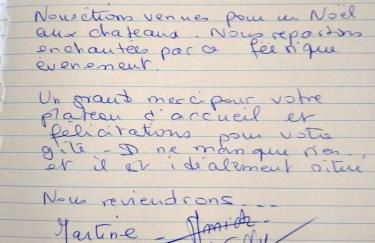 Nous étions venues pour un Noël
aux chateaux. Nous repartons
enchantées par ce féérique
évenement.
Un grand merci pour votre
plateau d'accueil et
félicitations pour votre
gîte - Il ne manque rien..
et il est idéalement situé
Nous reviendrons....
Martine